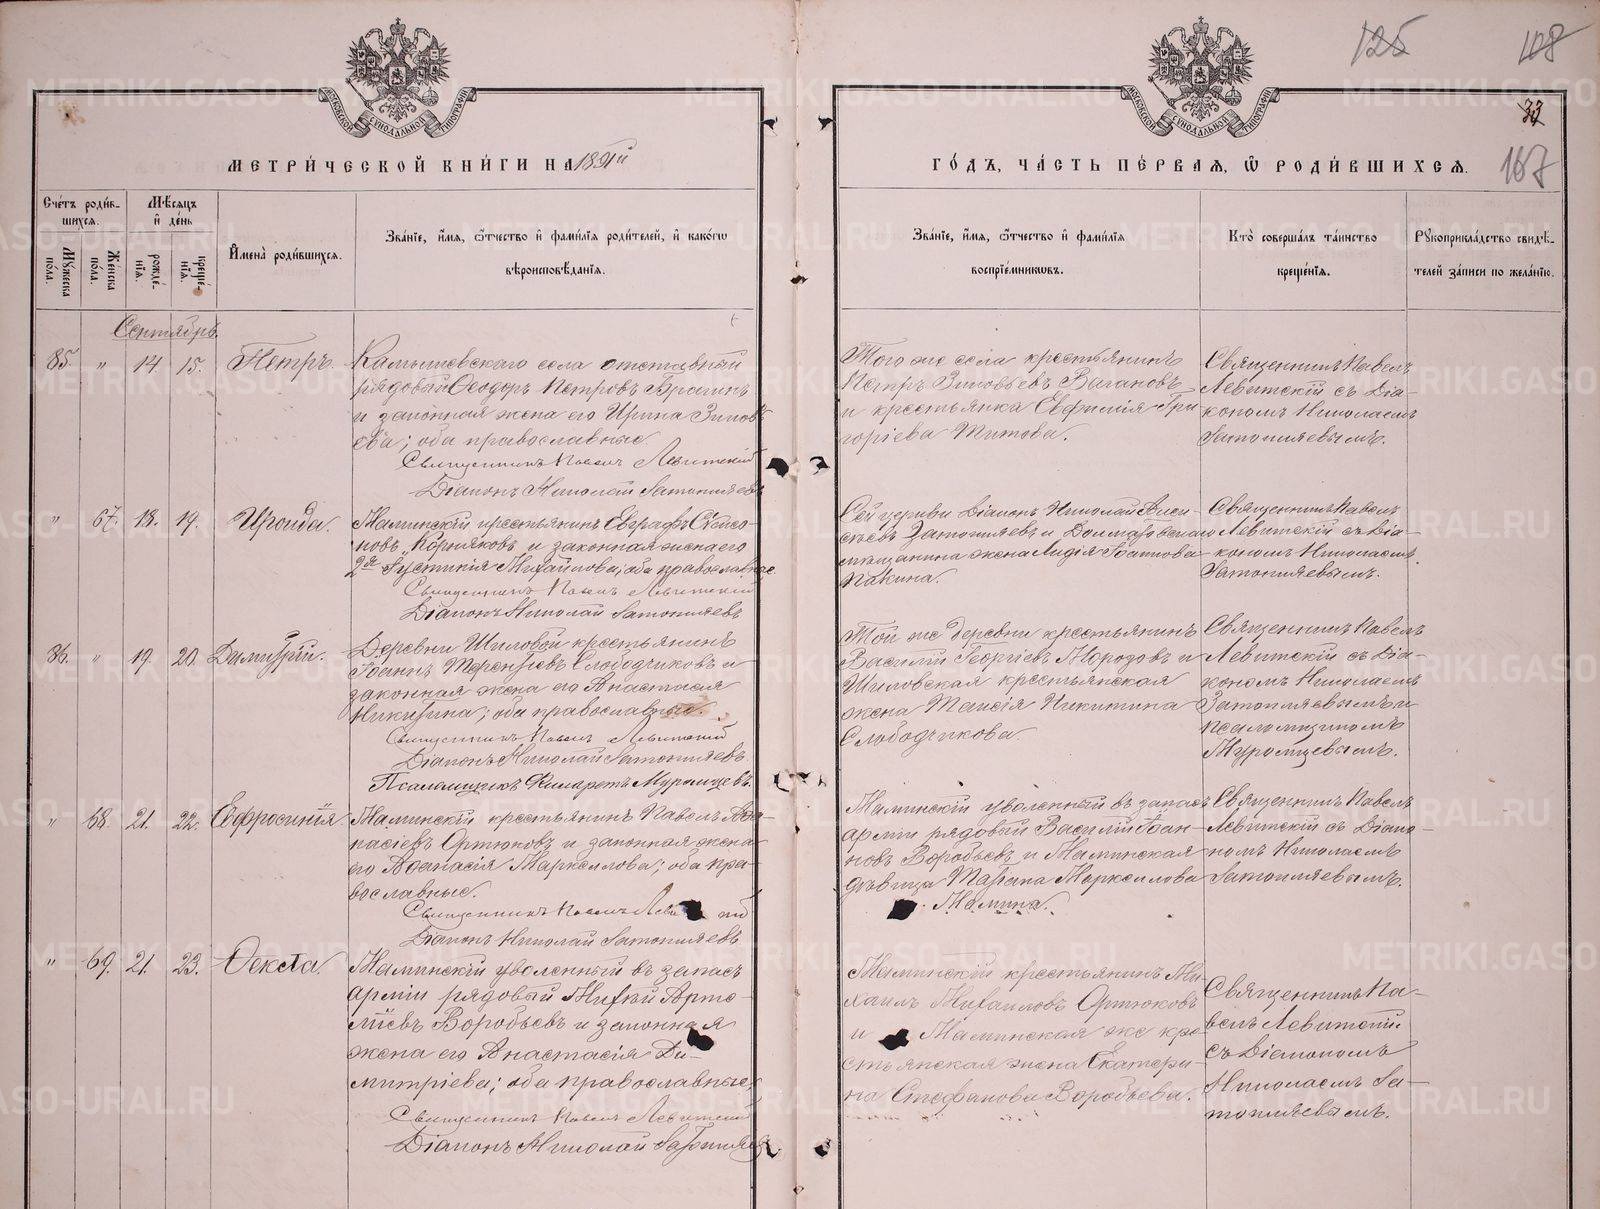 125
108
33
167
МОСКОВСКОЙ СѴНОДАЛЬНОЙ ТИПОГРАФІИ
МОСКОВСКОЙ СѴНОДАЛЬНОЙ ТИПОГРАФІИ
МЕТРИ́ЧЕСКОЙ КНИ́ГИ НА 1891й
ГО́ДЪ, ЧА́СТЬ ПЕ́РВАЯ, Ѿ РОДИ́ВШИХСЯ.
Сче́тъ роди́вшихся.
Му́жеска по́ла.
Же́нска по́ла.
Мѣ́сяцъ и҆ де́нь
рожде́нїя.
креще́нїя.
И҆мена̀ роди́вшихся.
Зва́нїе, и҆́мя, ѻ҆́тчество и҆ фами́лїя роди́телей, и҆ како́гѡ
вѣроисповѣ́данїя.
Зва́нїе, и҆́мя, ѻ҆́тчество и҆ фами́лїя
воспрїе́мникѡвъ.
Кто̀ соверша́лъ та́инство
креще́нїя.
Рꙋкоприкла́дство свидѣ́-
телей за́писи по жела́нїю.
Сентябрь.
85. " 14. 15. Петръ.
Камышевскаго села отставный
рядовый Ѳеодоръ Петровъ Брагинъ
и законная жена его Ирина Зиновь
ева; оба православные.
Священникъ Павелъ Левитскій
Діаконъ Николай Затопляевъ
Того же села крестьянинъ
Петръ Зиновьевъ Вагановъ
и крестьянка Евфимія Гри
горіева Титова.
Священникъ Павелъ
Левитскій съ Діа-
кономъ Николаемъ
Затопляевымъ.
" 67. 18. 19. Ираида.
Маминскій крестьянинъ Евграфъ
новъ Корняковъ и законная жена его
2я Іустинія Михайлова; оба православные.
Священникъ Павелъ Левитскій
Діаконъ Николай Затопляевъ
Сей церкви Діаконъ Николай Алек-
сѣевъ Затопляевъ и
мѣщанина жена Лидія Іоаннова
Пакина.
Священникъ Павелъ
Левитскій съ Діа-
кономъ Николаемъ
Затопляевымъ.
86. " 19. 20. Димитрій.
Деревни Шиловой крестьянинъ
Іоаннъ Терентіевъ Слободчиковъ и
законная жена его Анастасія
Никитина; оба православные.
Священникъ Павелъ Левитскій
Діаконъ Николай Затопляевъ
Псаломщикъ Филаретъ Муромцевъ.
Той же деревни крестьянинъ
Василій Георгіевъ Морозовъ и
Шиловская крестьянская
жена Таисія Никитина
Слободчикова.
Священникъ Павелъ
Левитскій съ Діа-
кономъ Николаемъ
Затопляевымъ и
псаломщикомъ
Муромцевымъ.
" 68. 21. 22. Ефросинія
Маминскій крестьянинъ Павелъ Аѳа-
насіевъ Ортюковъ и законная жена
его Аѳанасія Маркеллова; оба пра-
вославные.
Священникъ Павелъ Левитскій
Діаконъ Николай Затопляевъ
Маминскій уволенный въ запасъ
арміи рядовый Василій Іоан-
новъ Воробьевъ и Маминская
дѣвица Татіана Маркеллова
Мамина.
Священникъ Павелъ
Левитскій съ Діако-
номъ Николаемъ
Затопляевымъ.
" 69. 21. 23. Ѳекла.
Маминскій уволенный въ запасъ
арміи рядовый Михѣй Арте-
міевъ Воробьевъ и законная
жена его Анастасія Ди-
митріева; оба православные.
Священникъ Павелъ Левитскій
Діаконъ Николай Затопляевъ
Маминскій крестьянинъ Ми-
хаилъ Михаиловъ Ортюковъ
и Маминская же кре
стьянская жена Екатери-
на Стефанова Воробьева.
Священникъ Па-
велъ Левитскій
съ Діакономъ
Николаемъ За-
топляевымъ.
METRIKI.GASO-URAL.RU